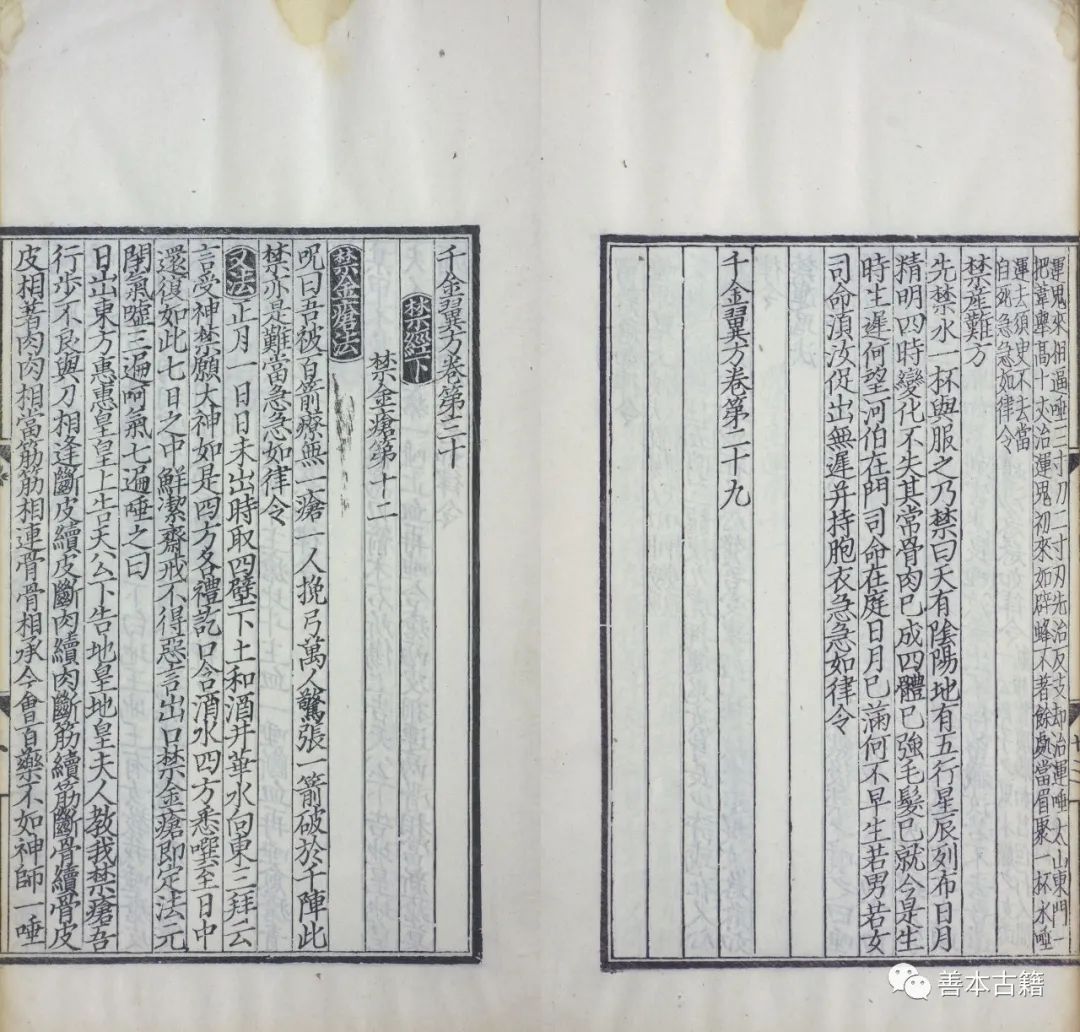 運鬼來相逼唾三寸刀二寸刃先治反支却治運唾太山東門一
把葦舉高十丈治運鬼初來如辟蜂不著餘處當眉聚一杯水唾
運去須臾不去當
自死急急如律令
禁産難方
先禁水一杯與服之乃禁曰天有陰陽地有五行星辰列布日月
精明四時變化不失其常骨肉已成四體已強毛髮已就今是生
時生遲何望河伯在門司命在庭日月已滿何不早生若男若女
司命須汝促出無遲并持胞衣急急如律令
千金翼方卷第二十九
千金翼方卷第三十
禁經下
禁金瘡第十二
禁金瘡法
呪曰吾被百箭療無一瘡一人挽弓萬人驚張一箭破於千陣此
禁亦是難當急急如律令
又法正月一日日未出時取四壁下土和酒井華水向東三拜云
言受神禁願大神如是四方各禮訖口含酒水四方悉噀至日中
還復如此七日之中鮮潔齋戒不得惡言出口禁金瘡即定法元
閉氣噓三遍呵氣七遍唾之曰
日出東方惠惠皇皇上告天公下告地皇地皇夫人教我禁瘡吾
行步不良與刀相逢斷皮續皮斷肉續肉斷筋續筋斷骨續骨皮
皮相著肉肉相當筋筋相連骨骨相承今會百藥不如神師一唾
善本古籍